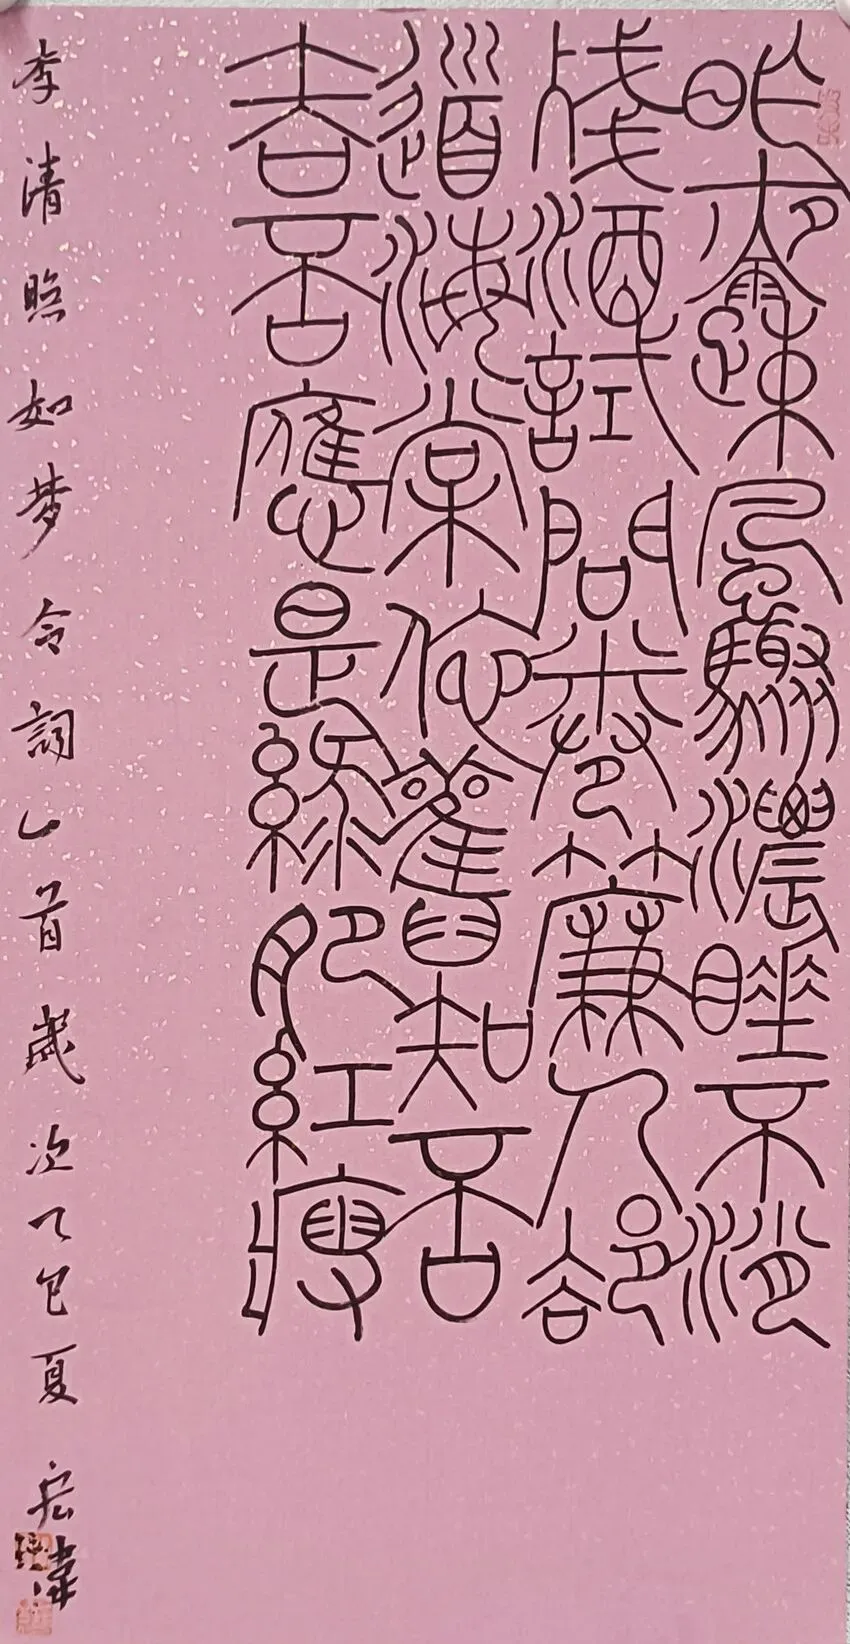 昨夜雨疏風驟濃睡不消
殘酒試問卷簾人卻
道海棠依舊知否
知否應是綠肥紅瘦
李清照如梦令詞一首歲次乙巳夏宏